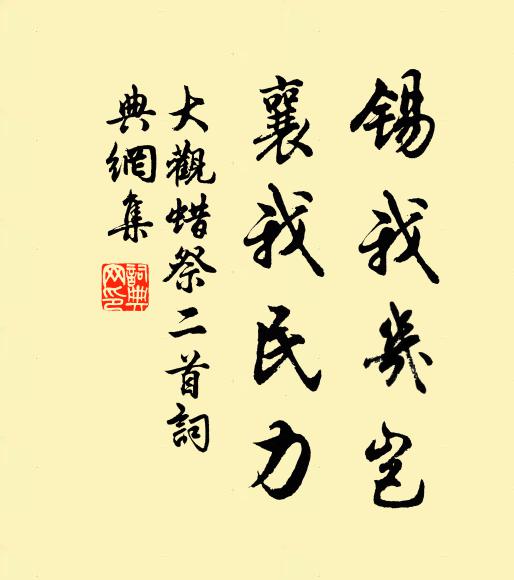 錫我幾岂
襄我民力
大觀蜡祭二首詞
典網集
詞典
网印